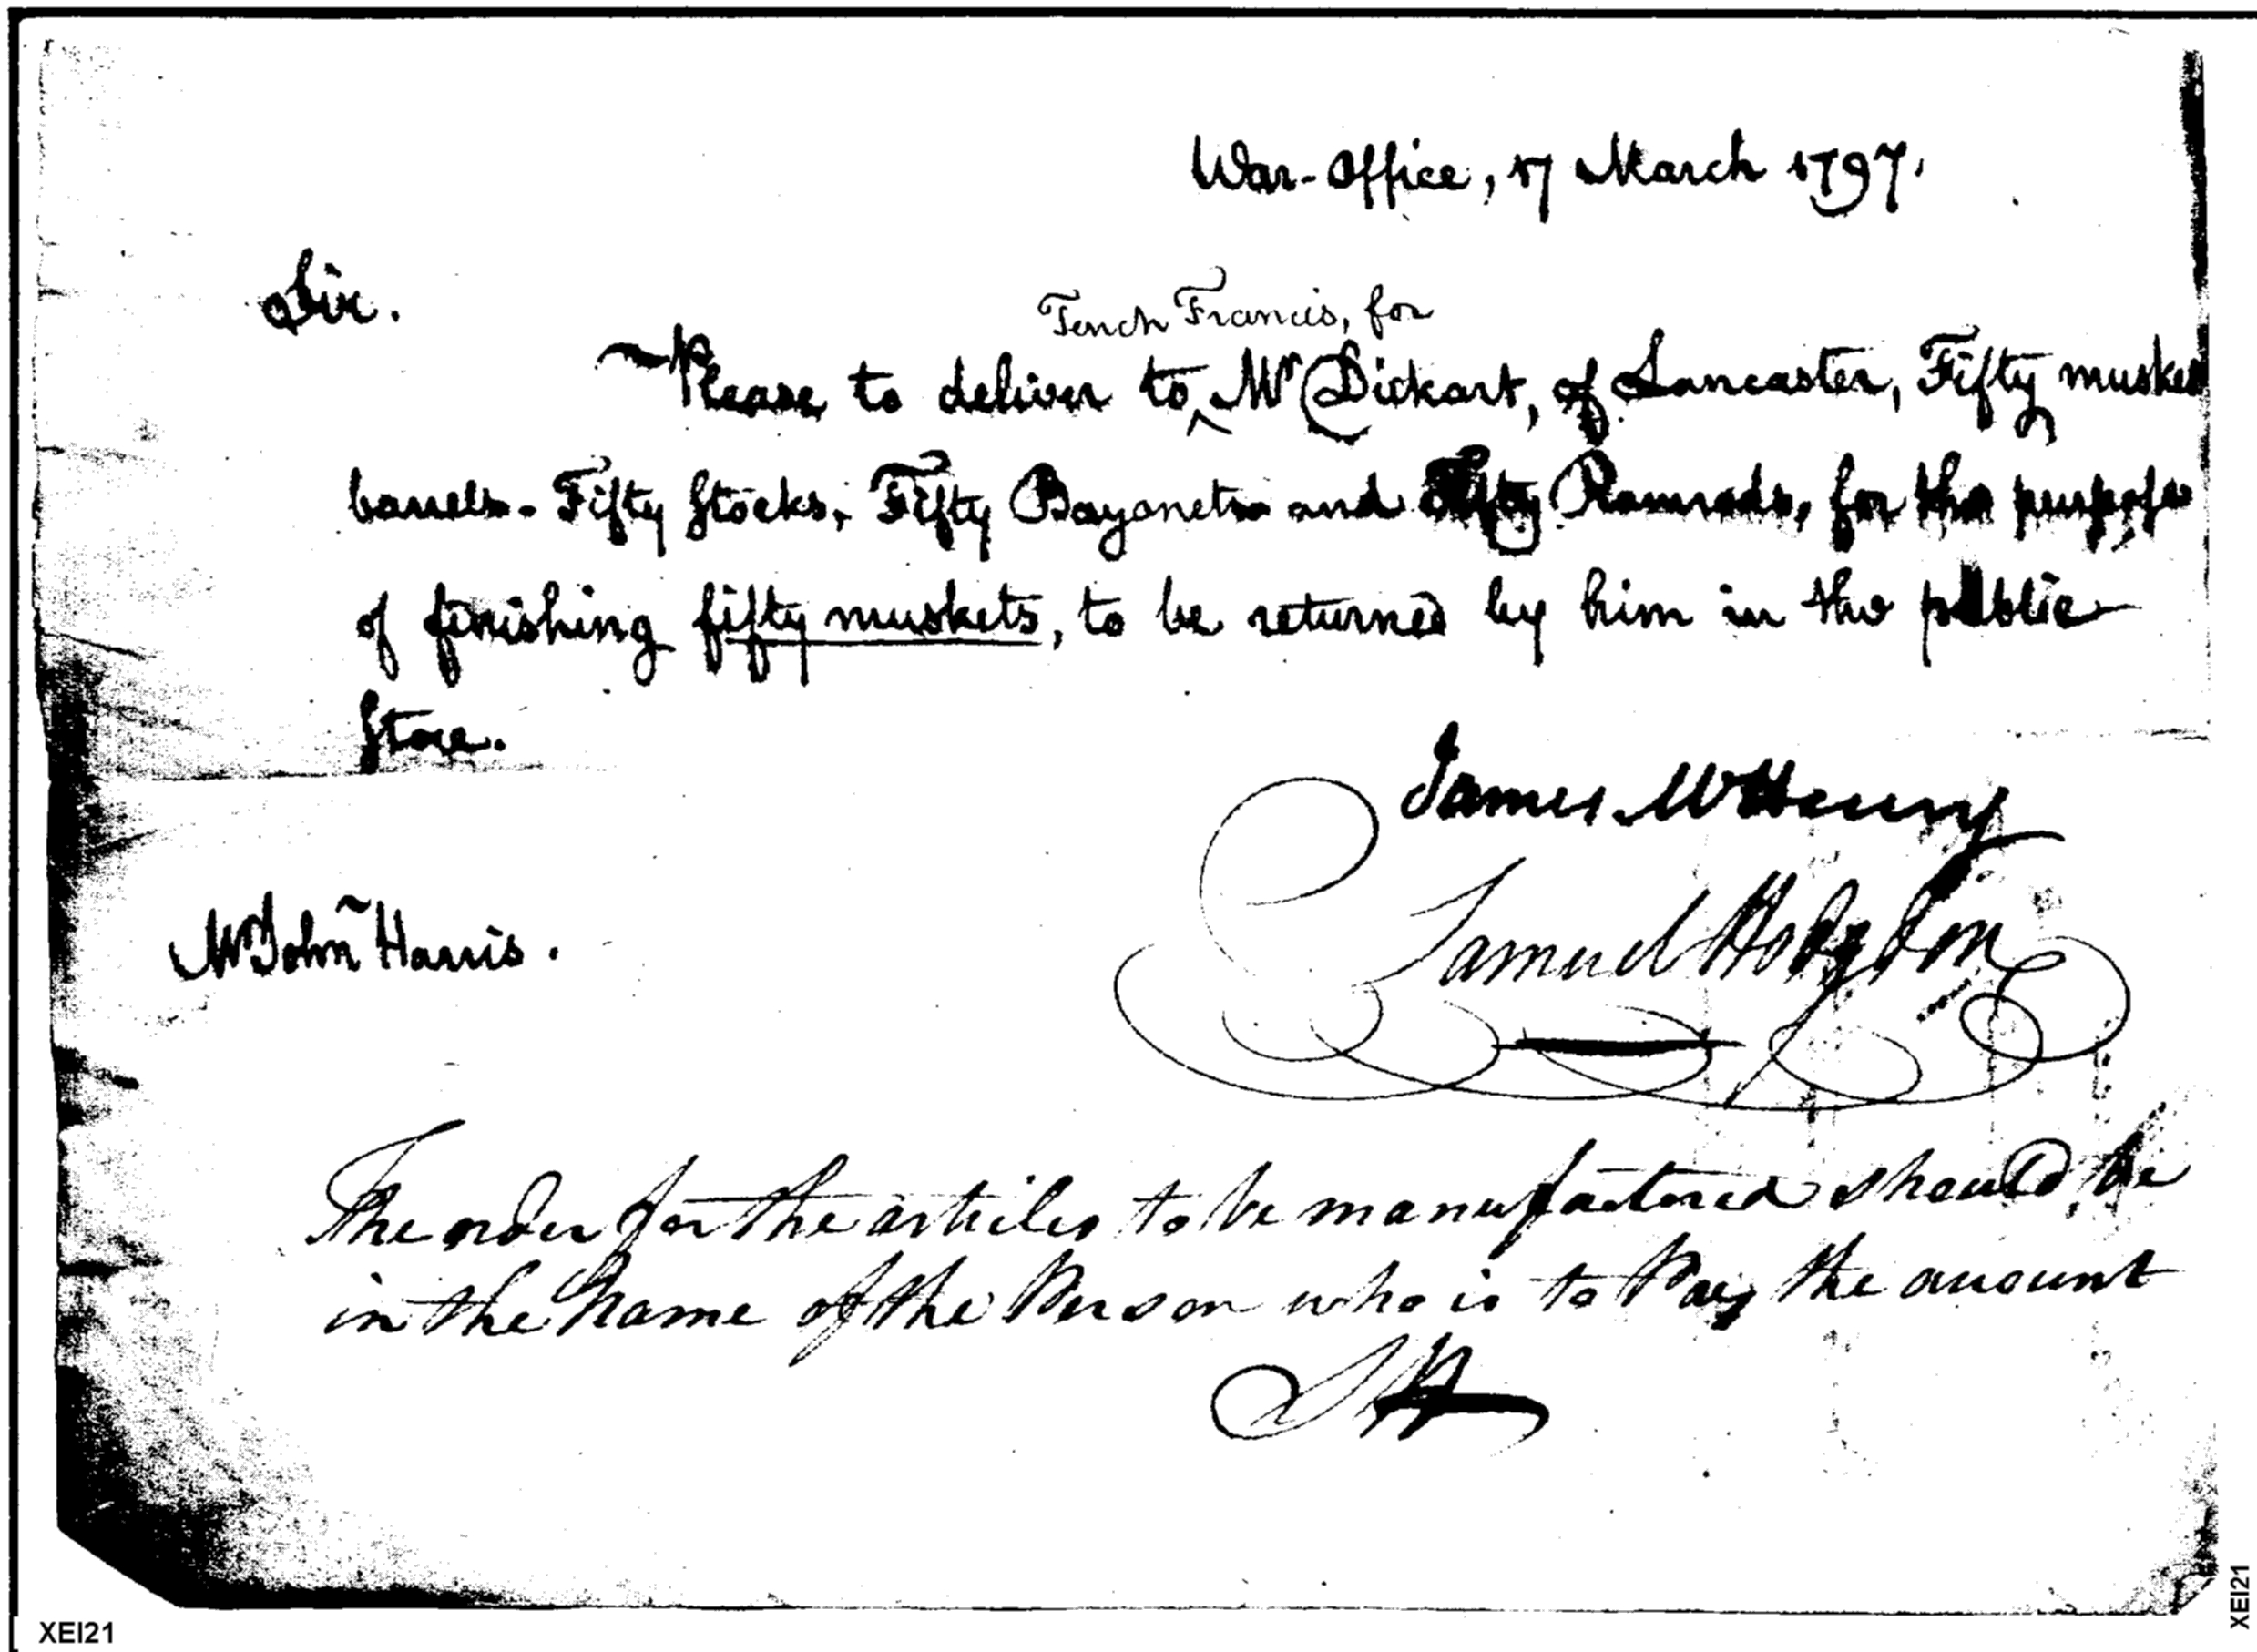 War-Office, 17 March 1797.
Sir.
Tench Francis, for
Please to deliver to ^ Mr Dickart, of Lancaster, Fifty musket
barrels - Fifty Stocks, Fifty Bayonets and Fifty Ramrods, for the purpose
of finishing fifty muskets, to be returned by him in the public
Store.
James McHenry
Samuel Hodgdon
Mr John Harris.
The order for the articles to be manufactored should, be
in the Name of the Person who is to Pay the amount
SH
XEI21
XEI21